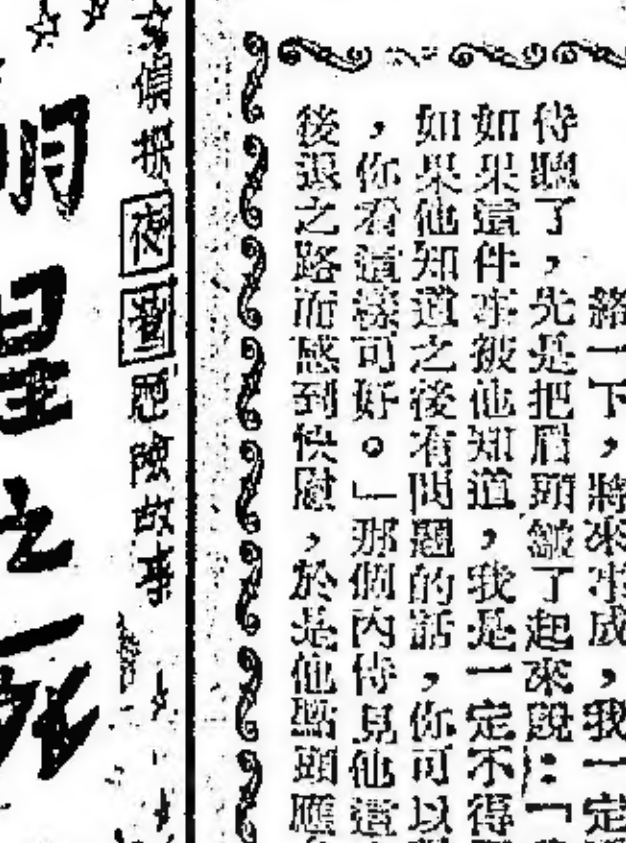 絡一下，將來事成，我一定
侍聽了，先是把眉頭皺了起來說：「
如果這件事被他知道，我是一定不得
如果他知道之後有問題的話，你可以
，你看這樣可好。」那個內侍見他這
後退之路而感到快慰，於是他點頭應
偵探夜鶯歷險故事
明星之死